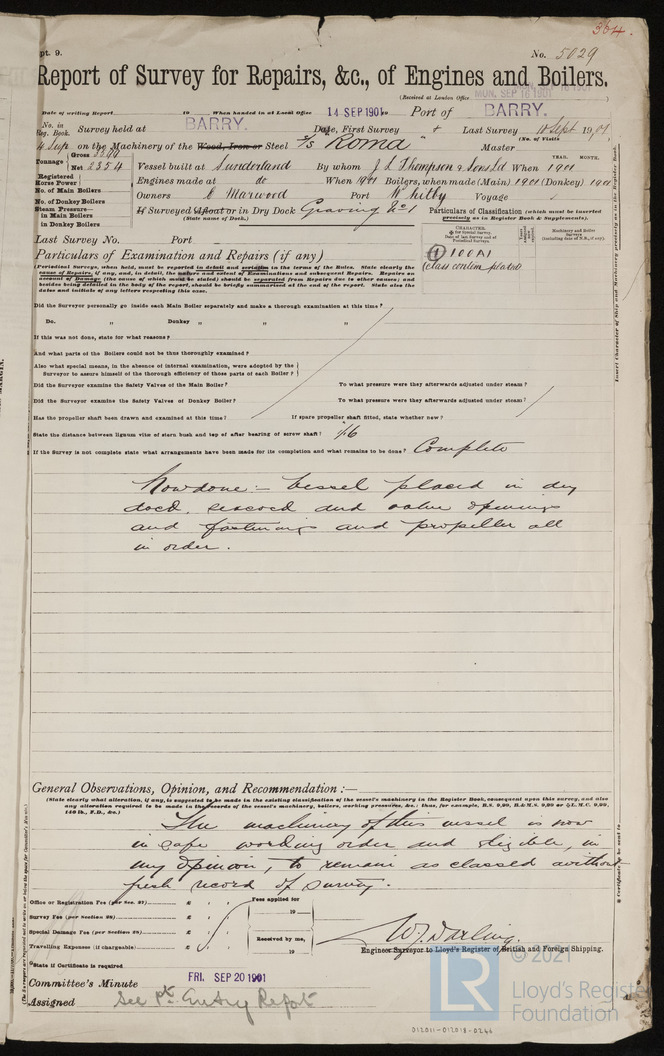 364.
pt. 9.
No. 5029
Report of Survey for Repairs, &c., of Engines and Boilers.
(Received at London Office MON. SEP 16 1901
Date of writing Report to When handed in at Local Office 14 SEP 1901 Port of BARRY.
No. in Reg. Book. Survey held at BARRY. Date, First Survey Last Survey 10 Sept 1901
(No. of Visits)
4 Sup on the Machinery of the Wood, Iron or Steel S/S Roma Master
Tonnage Gross Net 2354
YEAR. MONTH.
Vessel built at Sunderland By whom J L Thompson & Sons Ld When 1901
Registered Horse Power
Engines made at do When 1901 Boilers, when made (Main) 1901 (Donkey) 1901
No. of Main Boilers
Owners C Marwood Port Whitby Voyage
No. of Donkey Boilers
Steam Pressure— in Main Boilers
in Donkey Boilers
If Surveyed Afloat or in Dry Dock Graving No 1
(State name of Dock.)
Particulars of Classification (which must be inserted precisely as in Register Book & Supplements).
CHARACTER.
for Special Survey.
Date of last Survey and of Periodical Surveys.
Machinery and Boiler Surveys
(including date of N.B., if any).
100A1
class contem. plated
Last Survey No. Port
Particulars of Examination and Repairs (if any)
(Periodical Surveys, when held, must be reported in detail and seriatim in the terms of the Rules. State clearly the
name of Repairs, if any, and, in detail, the nature and extent of Examinations and subsequent Repairs. Repairs on
account of Damage (the cause of which must be stated) should be separated from Repairs due to other causes; and
besides being detailed in the body of the report, should be briefly summarised at the end of the report. State also the
dates and initials of any letters respecting this case.
Did the Surveyor personally go inside each Main Boiler separately and make a thorough examination at this time?
Do. „ Donkey „ „ „
If this was not done, state for what reasons?
And what parts of the Boilers could not be thus thoroughly examined?
Also what special means, in the absence of internal examination, were adopted by the
Surveyor to assure himself of the thorough efficiency of those parts of each Boiler?
Did the Surveyor examine the Safety Valves of the Main Boiler? To what pressure were they afterwards adjusted under steam?
Did the Surveyor examine the Safety Valves of Donkey Boiler? To what pressure were they afterwards adjusted under steam?
Has the propeller shaft been drawn and examined at this time? If spare propeller shaft fitted, state whether new?
State the distance between lignum vitæ of stern bush and top of after bearing of screw shaft? 1/16
If the Survey is not complete state what arrangements have been made for its completion and what remains to be done? Complete
Now done:- Vessel placed in dry
dock, seacock and valve openings
and fastenings and propeller all
in order.
General Observations, Opinion, and Recommendation:—
(State clearly what alteration, if any, is suggested to be made in the existing classification of the vessel's machinery in the Register Book, consequent upon this survey, and also
any alteration required to be made in the records of the vessel's machinery, boilers, working pressures, &c.; thus, for example, B.S. 9,99, B.&M.S. 9,99 or L.M.C. 9,99,
140 lb., F.D., &c.)
The machinery of this vessel is now
in safe working order and eligible, in
my opinion, to remain as classed without
fresh record of survey.
Office or Registration Fee (per Sec. 27) £
Survey Fee (per Section 28) £
Special Damage Fee (per Section 28) £
Travelling Expenses (if chargeable) £
Fees applied for
19
Received by me,
19
W. J. Darling.
Engineer Surveyor to Lloyd's Register of British and Foreign Shipping.
State if Certificate is required
Committee's Minute FRI. SEP 20 1901
Assigned See Pt Entry Report
Insert Character of Ship and Machinery precisely as in the Register Book.
Certificate to be sent to
© 2021
LR
Lloyd's Register
Foundation
012011-012018-0246